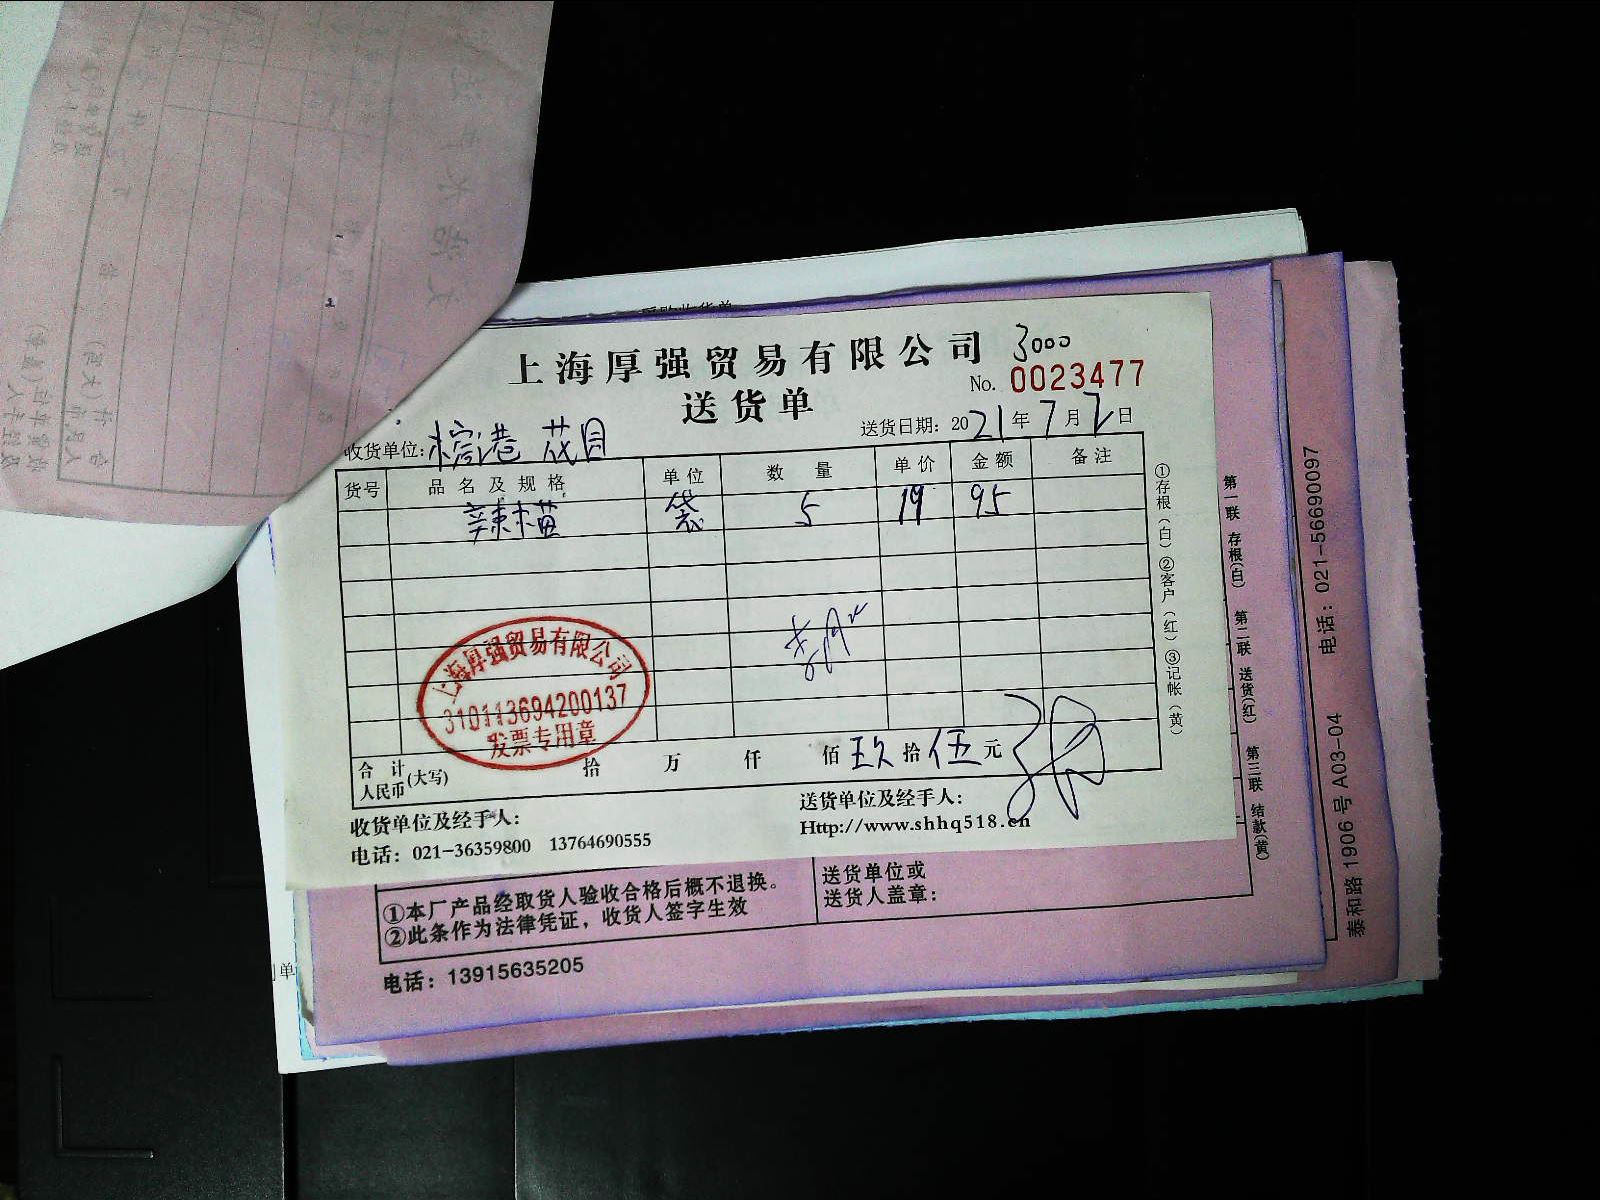 上海厚强贸易有限公司 3000
送货单 No. 0023477
收货单位: 送货日期: 2021年7月2日
货号 品名及规格 单位 数量 单价 金额 备注
袋 5 19 95
上海厚强贸易有限公司
310113694200137
发票专用章
合计人民币(大写) 拾 万 仟 佰 玖拾 伍元
收货单位及经手人: 送货单位及经手人:
电话: 021-36359800 13764690555 Http://www.shhq518.cn
①存根(白) ②客户(红) ③记帐(黄)
第一联 存根(白) 第二联 送货(红) 第三联 结款(黄)
①本厂产品经取货人验收合格后概不退换。
②此条作为法律凭证，收货人签字生效
送货单位或
送货人盖章:
电话: 13915635205
泰和路 1906 号 A03-04 电话: 021-56690097